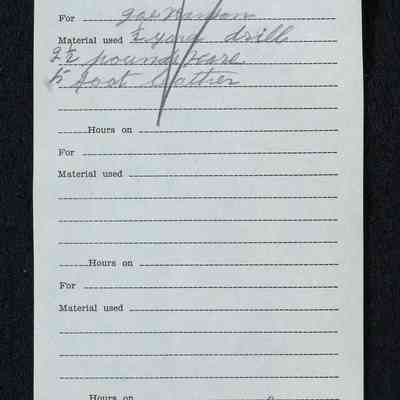 For
Material used ½ yard drill
2½ pounds
5 foot leather
Hours on
For
Material used
Hours on
For
Material used
Hours on